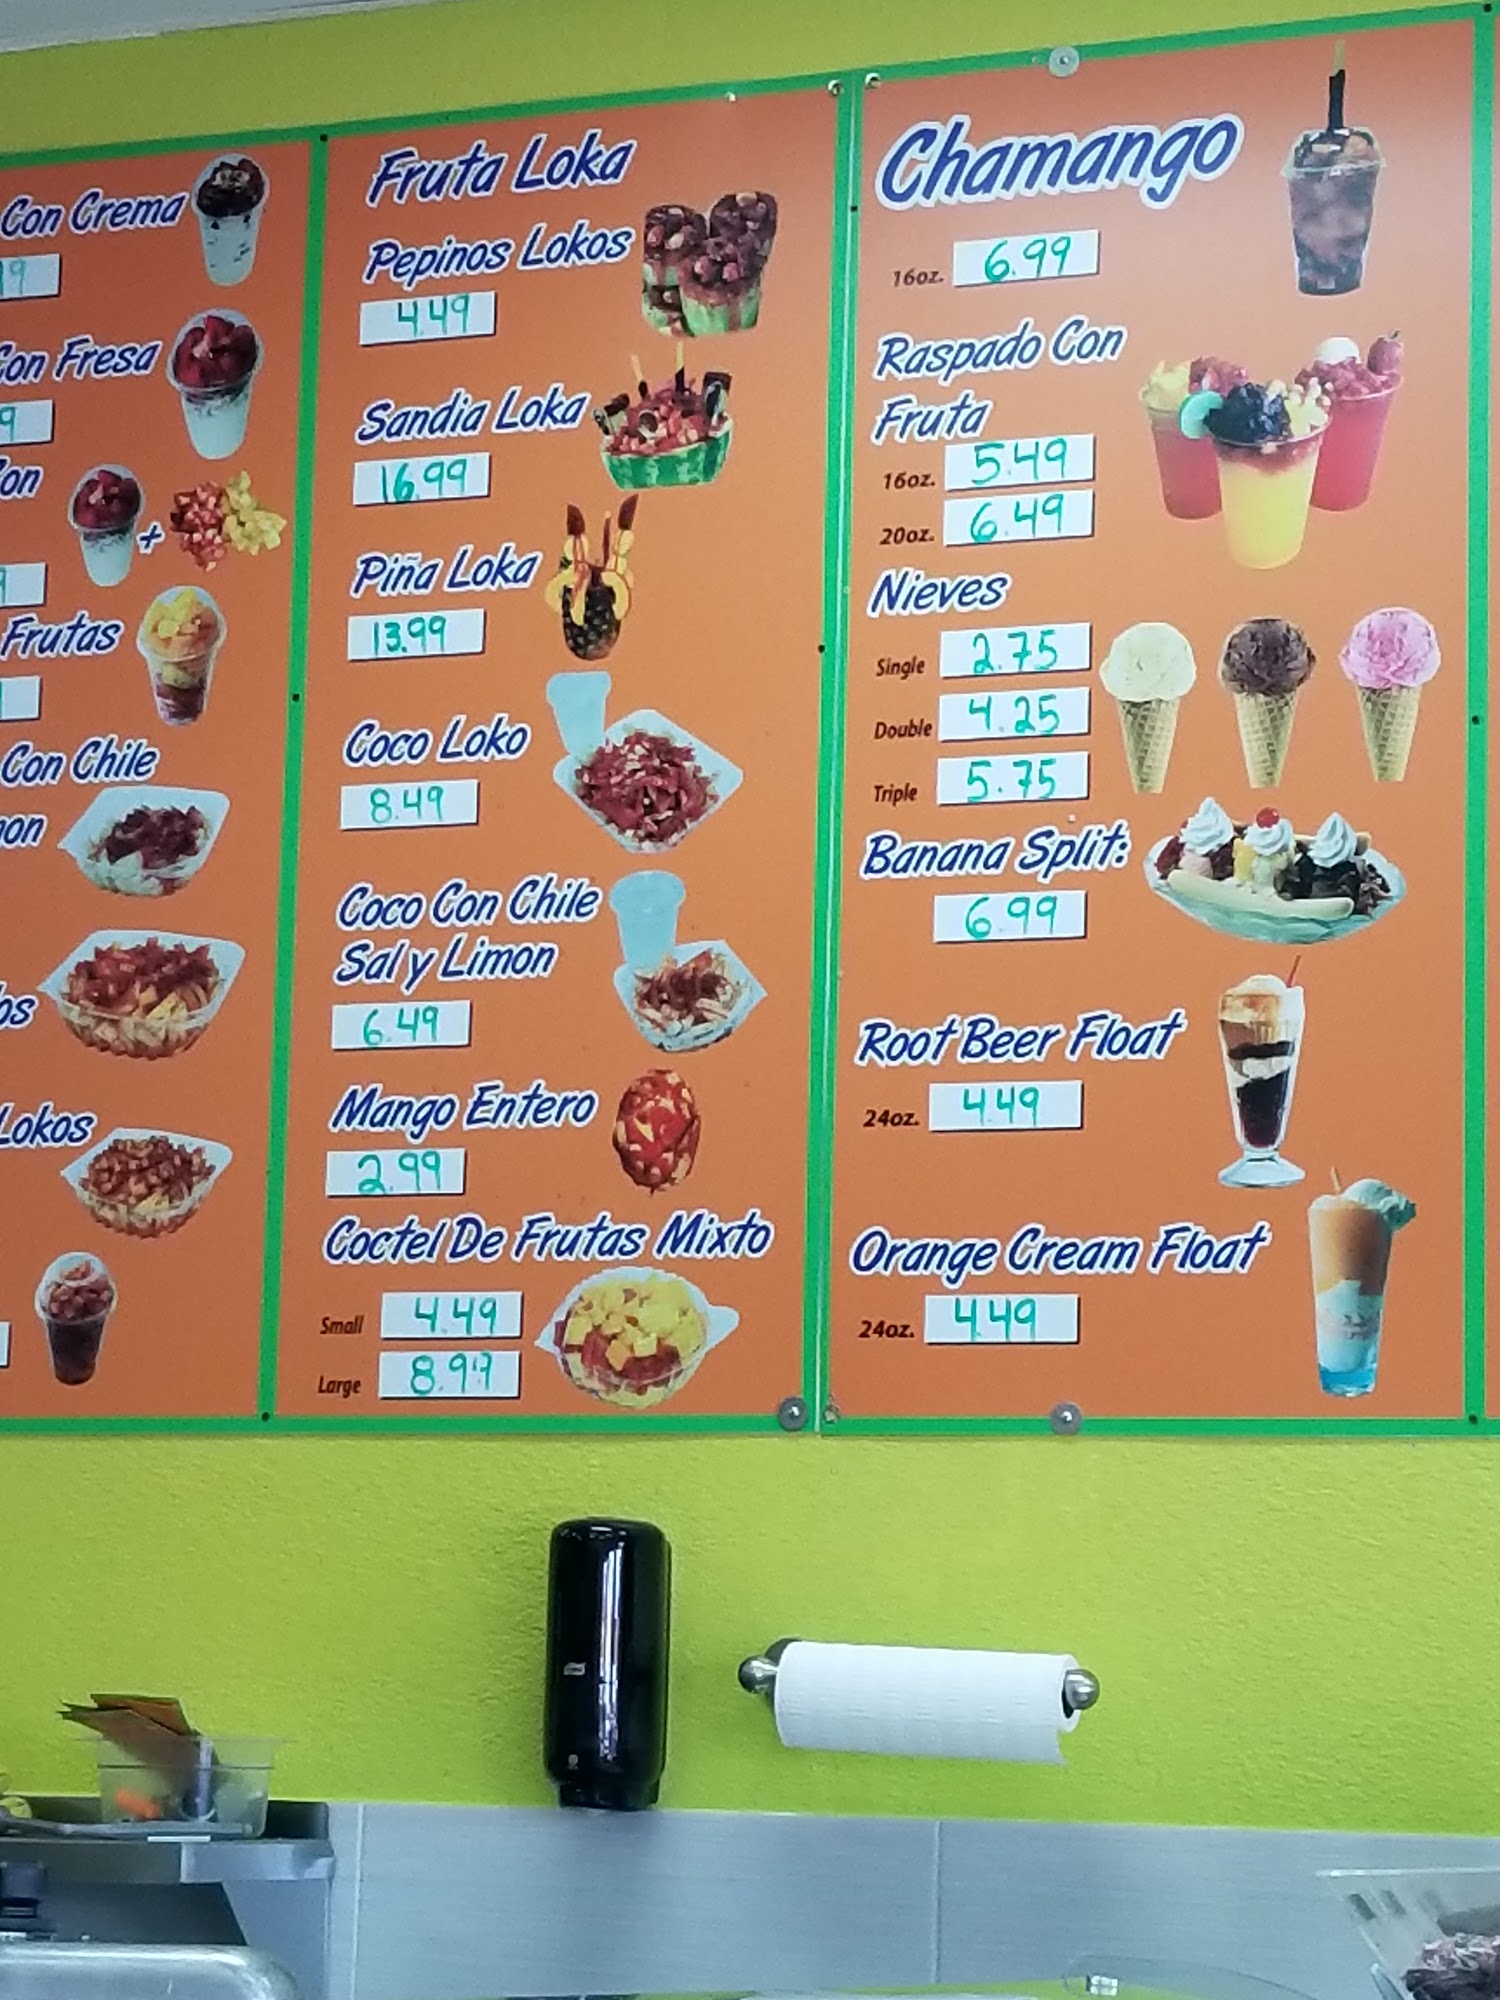 Con Crema
Con Fresa
+
Frutas
Con Chile
Lokos
Fruta Loka
Pepinos Lokos
4.49
Sandia Loka
16.99
Piña Loka
13.99
Coco Loko
8.49
Coco Con Chile
Sal y Limon
6.49
Mango Entero
2.99
Coctel De Frutas Mixto
Small 4.49
Large 8.99
Chamango
16oz. 6.99
Raspado Con
Fruta
16oz. 5.49
20oz. 6.49
Nieves
Single 2.75
Double 4.25
Triple 5.75
Banana Split:
6.99
Root Beer Float
24oz. 4.49
Orange Cream Float
24oz. 4.49